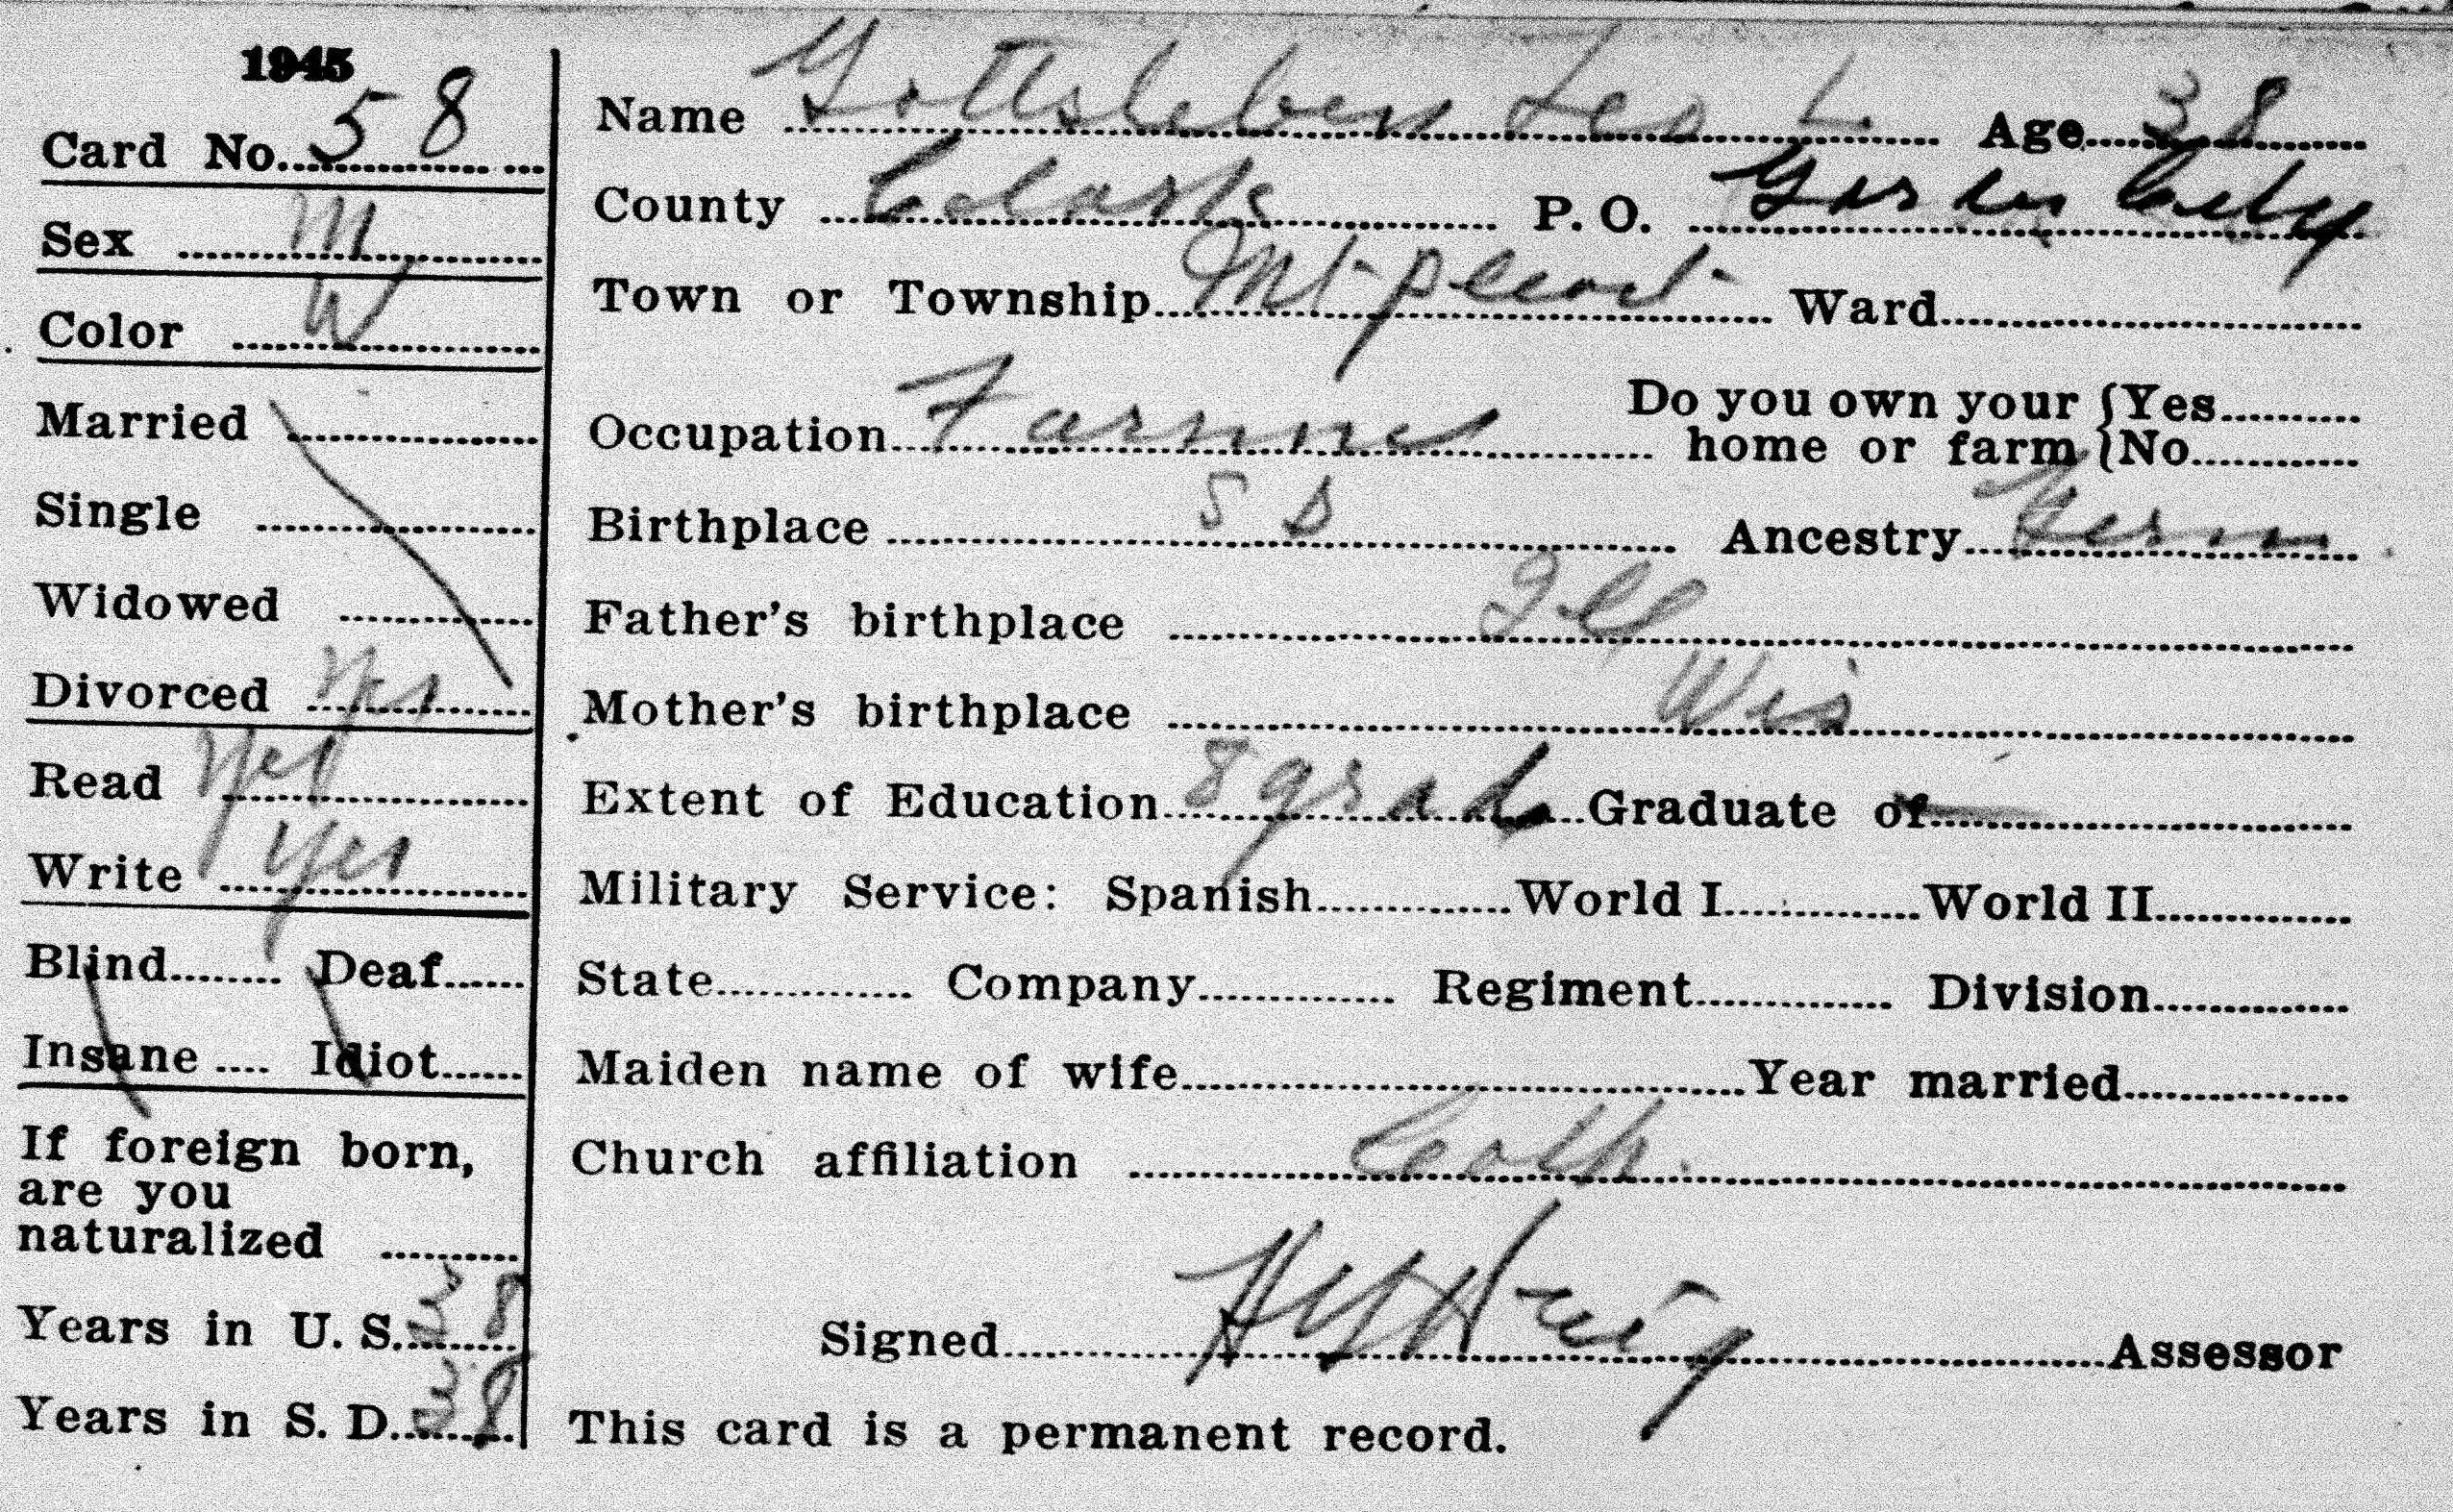 1945
Card No. 58
Sex M
Color W
Married
Single
Widowed
Divorced Yes
Read Yes
Write Yes
Blind Deaf
Insane Idiot
If foreign born,
are you
naturalized
Years in U. S. 38
Years in S. D. 38
Name Gottsleben Leo L. Age 38
County Clark P. O. Garden City
Town or Township Mt Ward
Occupation Farmer Do you own your {Yes
home or farm {No
Birthplace S D Ancestry Germ
Father's birthplace Ill
Mother's birthplace Wis
Extent of Education 8 grade Graduate of —
Military Service: Spanish World I World II
State Company Regiment Division
Maiden name of wife Year married
Church affiliation Cath.
Signed Assessor
This card is a permanent record.